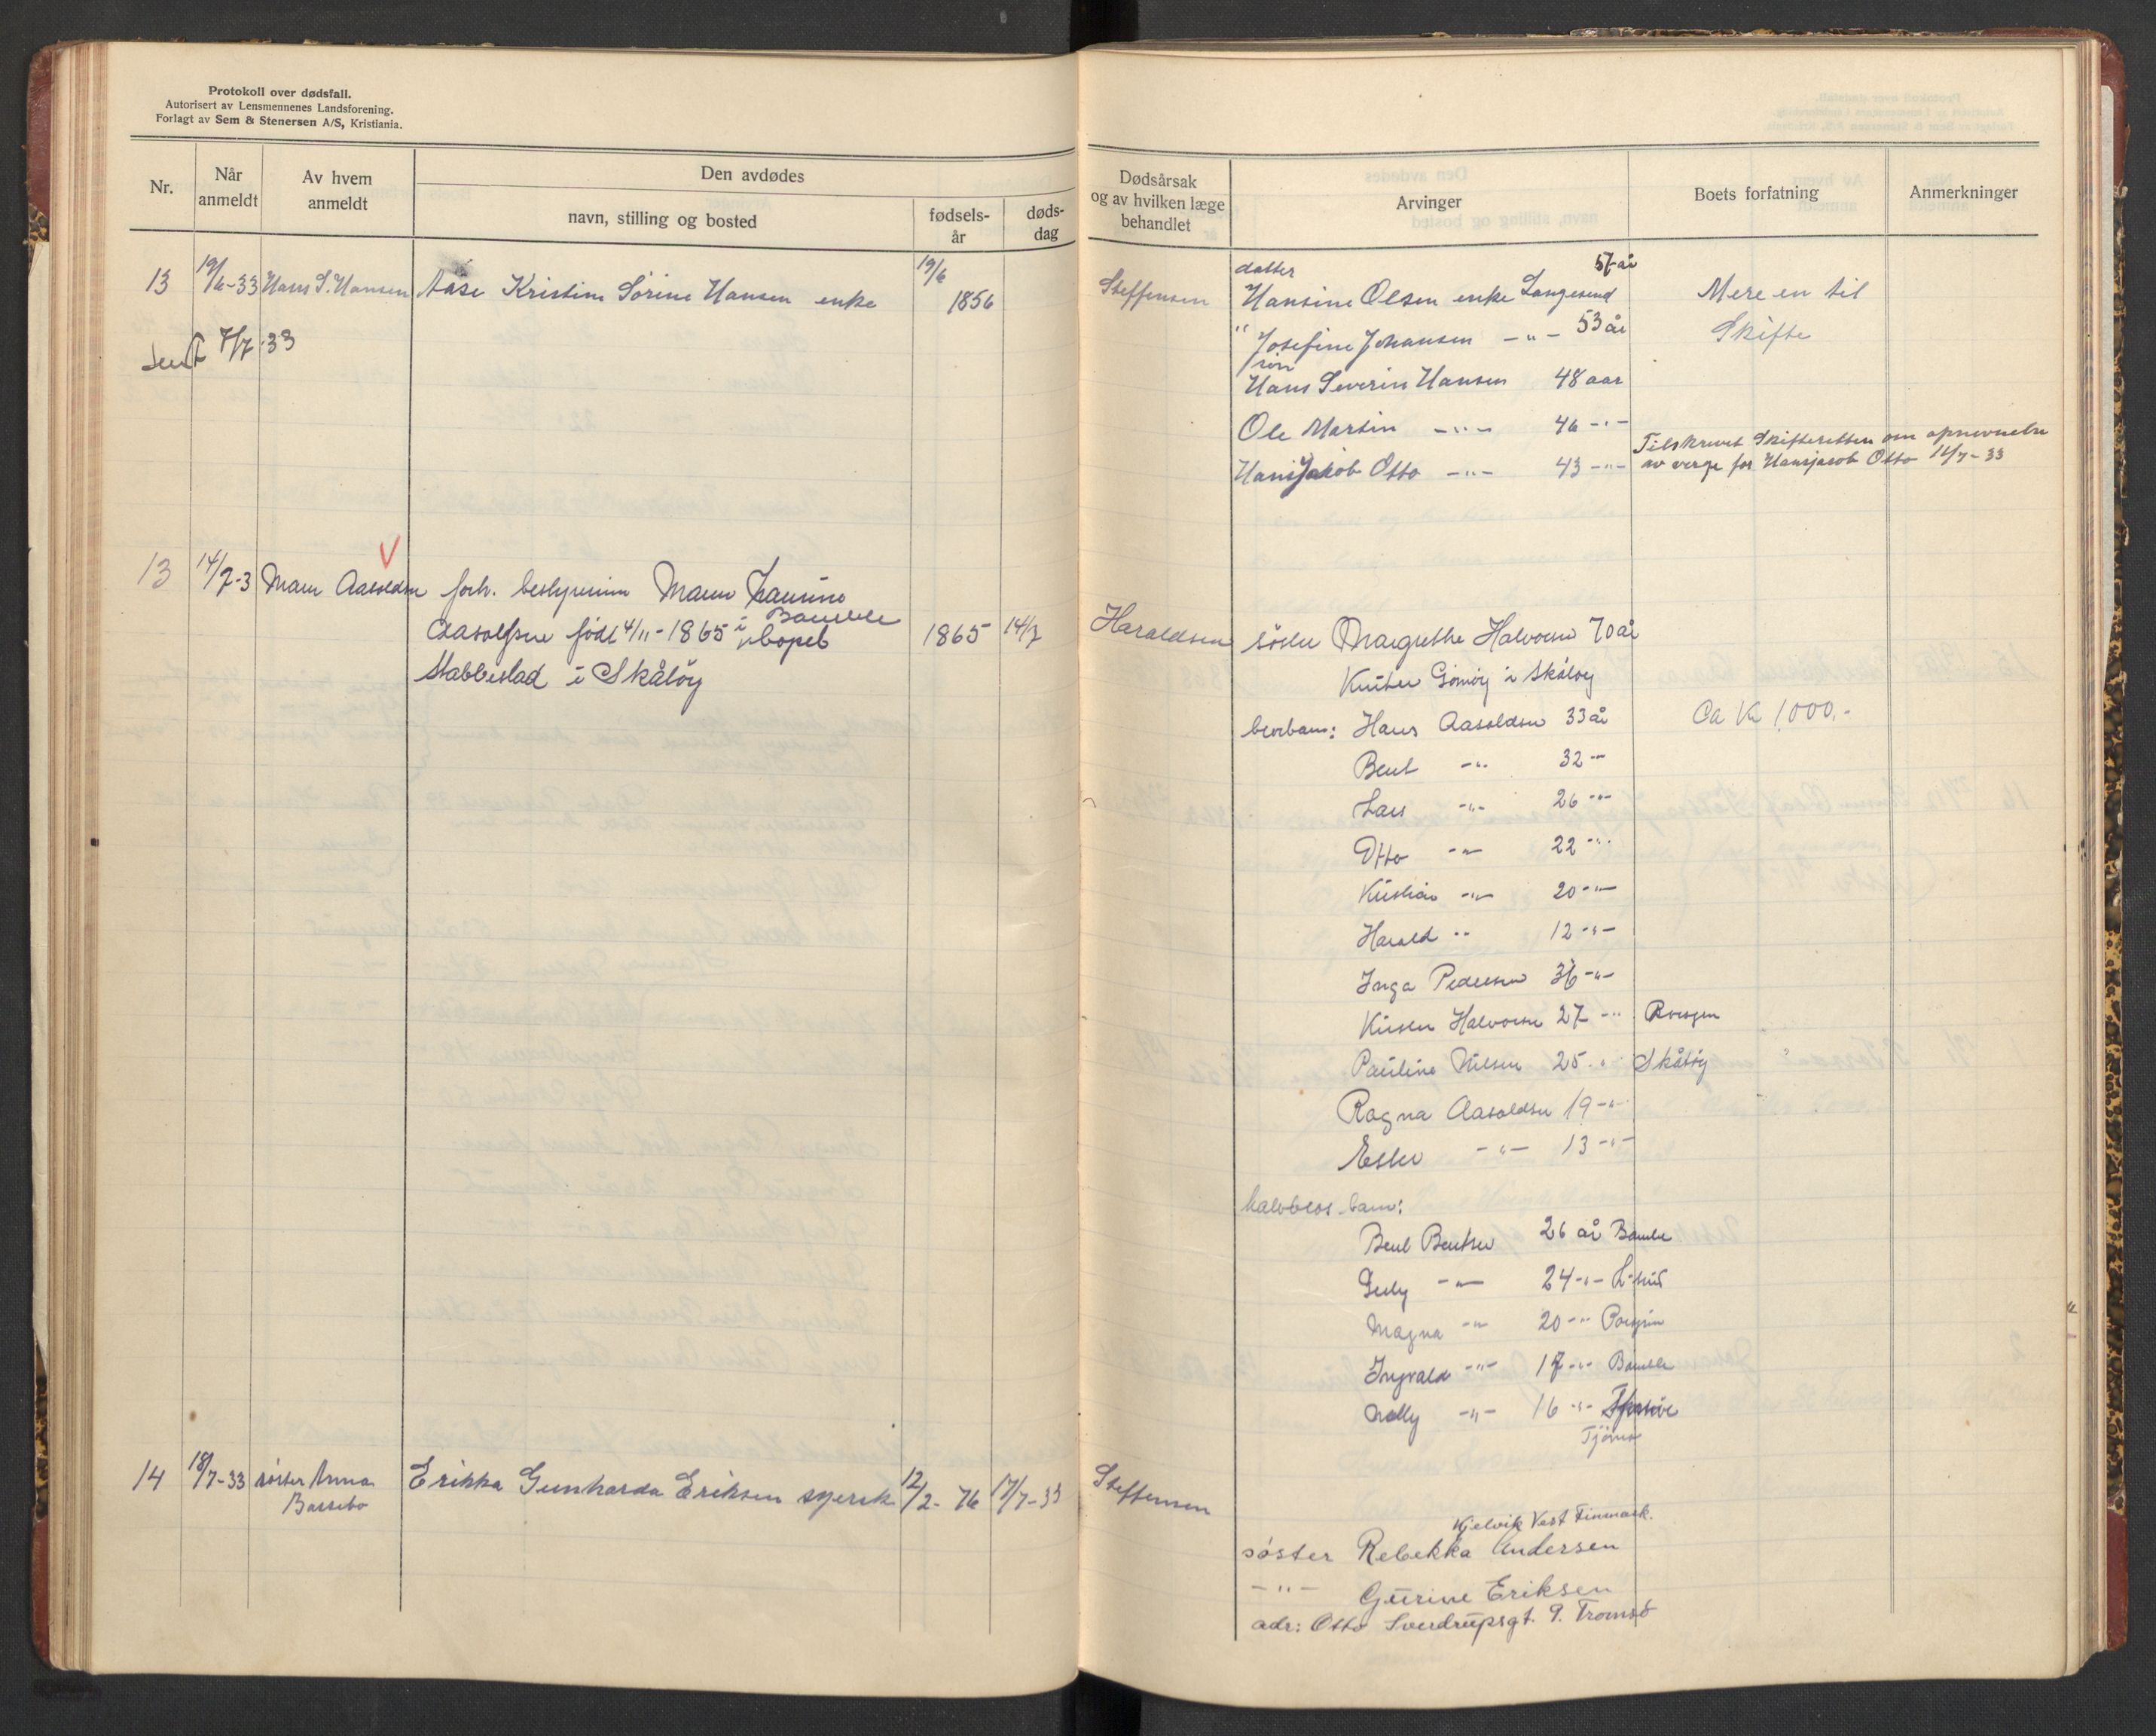 Protokoll over dødsfall.
Autorisert av Lensmennenes Landsforening.
Forlagt av Sem & Stenersen A/S, Kristiania.
Nr.
Når anmeldt
Av hvem anmeldt
Den avdødes
navn, stilling og bosted
fødsels-år
døds-dag
Dødsårsak og av hvilken læge behandlet
Arvinger
Boets forfatning
Anmerkninger
13 19/6-33 Hans S. Hansen Aase Kristine Sørine Hansen enke 19/6 1856
Sent 7/7-33
Steffensen
datter 57 år
Hansine Olsen enke Langesund
" Josefine Johansen -"- 53 år
søn
Hans Severin Hansen 48 aar
Ole Martin -"- 46 -"-
Hans Jakob Otto -"- 43 -"-
Mere en til
Skifte
Tilskrevet Skifteretten om opnevnelse
av verge for Hansjacob Otto 14/7-33
13 14/7-3 Maren Aasoldsen V forh. bestyrerinne Maren
født 4/11-1865 i Bamble bopel 1865 14/7
Stabbestad i Skåtøy
Haraldsen
søster Margrethe Halvorsen 70 år
i Skåtøy
brorbarn: Hans Aasoldsen 33 år
Ca Kr 1000,-
Bent -"- 32 -"-
Lars -"- 26 -"-
Otto -"- 22 -"-
Kristian -"- 20 -"-
Harald -"- 12 -"-
Inga Pedersen 36 -"-
Halvorsen 27 -"-
Pauline Nilsen 25 -"- Skåtøy
Ragna Aasoldsen 19 -"-
Ester -"- 13 -"-
halvbros barn:
Bent Bentsen 26 år Bamble
-"- 24 -"- L-sund
Magna -"- 20 -"-
Ingvald -"- 17 -"- Bamble
Nelly -"- 16 -"-
Tjømø
14 18/7-33 søster Anna
Bassebo
Erikka Gunharda Eriksen syersk 12/2-76 17/7-33
Steffensen
Kjelvik Vest Finmark.
søster Rebekka Andersen
-"- Gurine Eriksen
adr: Otto Sverdrupsgt. 9. Tromsø